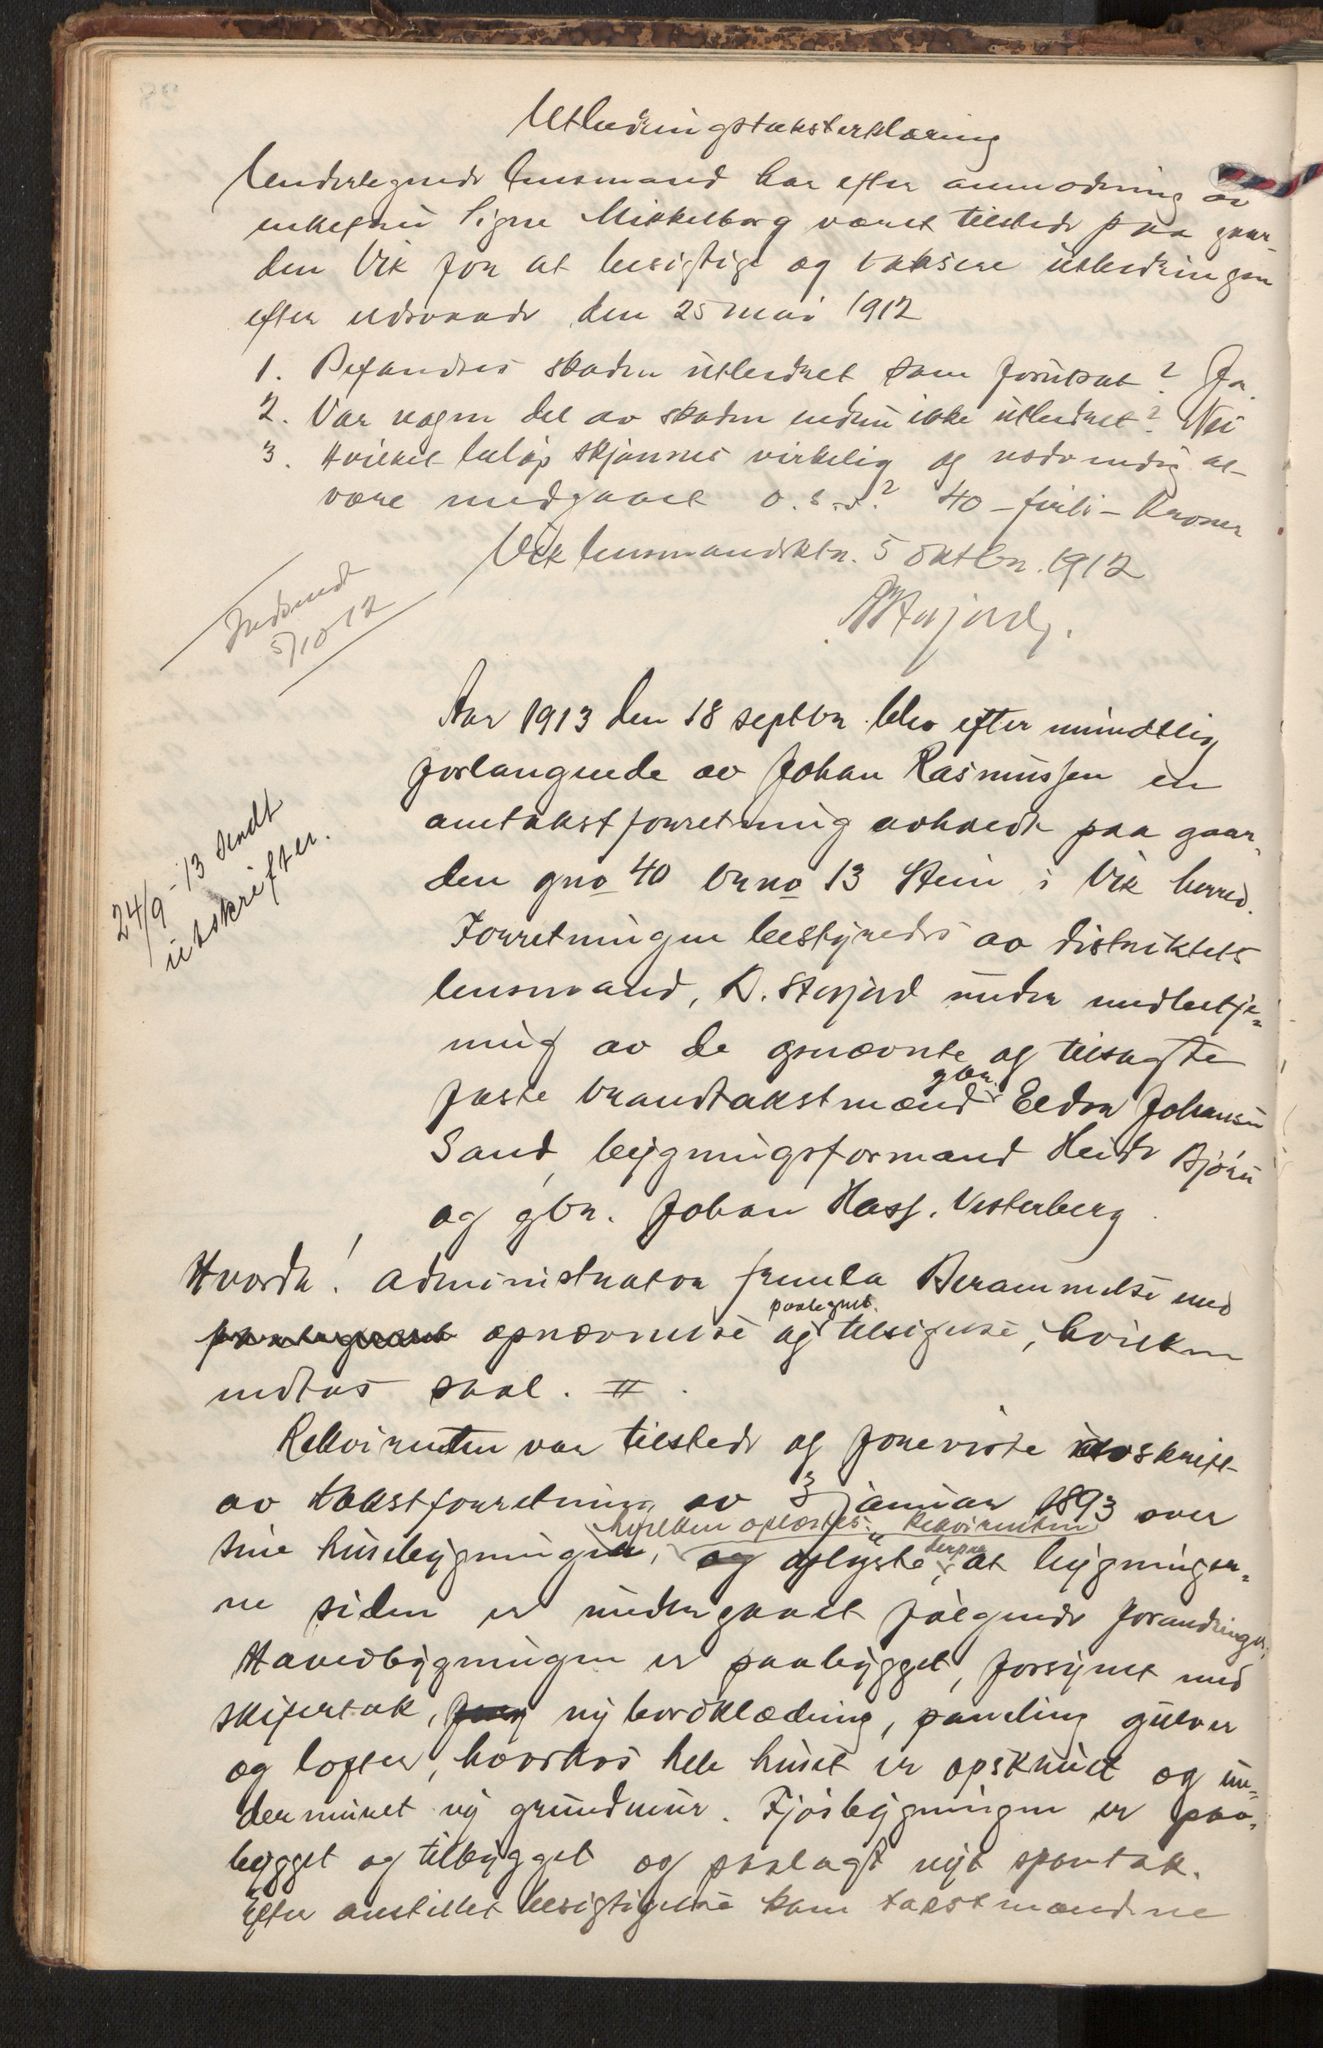 Utbedringstaksterklæring
Undertegnede lensmand har efter anmodning av
enkefru Signe Mikkelborg været tilstede paa gaar-
den Vik for at besigtige og taksere utbedringen
efter ildsvaade den 25 mai 1912
1. Befandtes skaden utbedret som forutsat? Ja.
2. Var nogen del av skaden endnu ikke utbedret? Nei
3. Hvilket beløp skjønnes virkelig og nødvendig at
være medgaaet o.s.v.? 40 – firti – Kroner
Vik lensmandsktr. 5 oktbr. 1912
Indsendt
5/10 12
Aar 1913 den 18 septbr. blev efter mundtlig
forlangende av Johan Rasmussen en
omtakstforretning avholdt paa gaar-
den gno 40 brno 13 Stein i Vik herred.
24/9-13 sendt
utskrifter.
Forretningen bestyredes av distriktets
lensmand, K. Havjord under medbetje-
ning av de opnævnte og tilsagte
faste brandtakstmænd gbr. Eldor Johansen
Sand, bygningsformand Heide Bjørn
og gbr. Johan Hass. Vesterberg.
Hvorda! Administrator fremla Berammelse med
paategnet opnævnelse og paategnet tilsigelse, hvilken
indtas saal. #.
Rekvirenten var tilstede og foreviste avskrift
av takstforretning av 3 januar 1893 over
hvilken oplæstes. Rekvirenten
sine husebygninger, og oplyste derpaa, at bygninger-
ne siden er undergaaet følgende forandringer:
Hovedbygningen er paabygget, forsynet med
skifertak, ny bordklædning, paneling gulver
og lofter, hvorhos hele huset er opskruet og un-
dermuret ny grundmur. Fjøsbygningen er paa-
bygget og tilbygget og paalagt nyt spontak.
Efter anstillet besigtigelse kom takstmændene